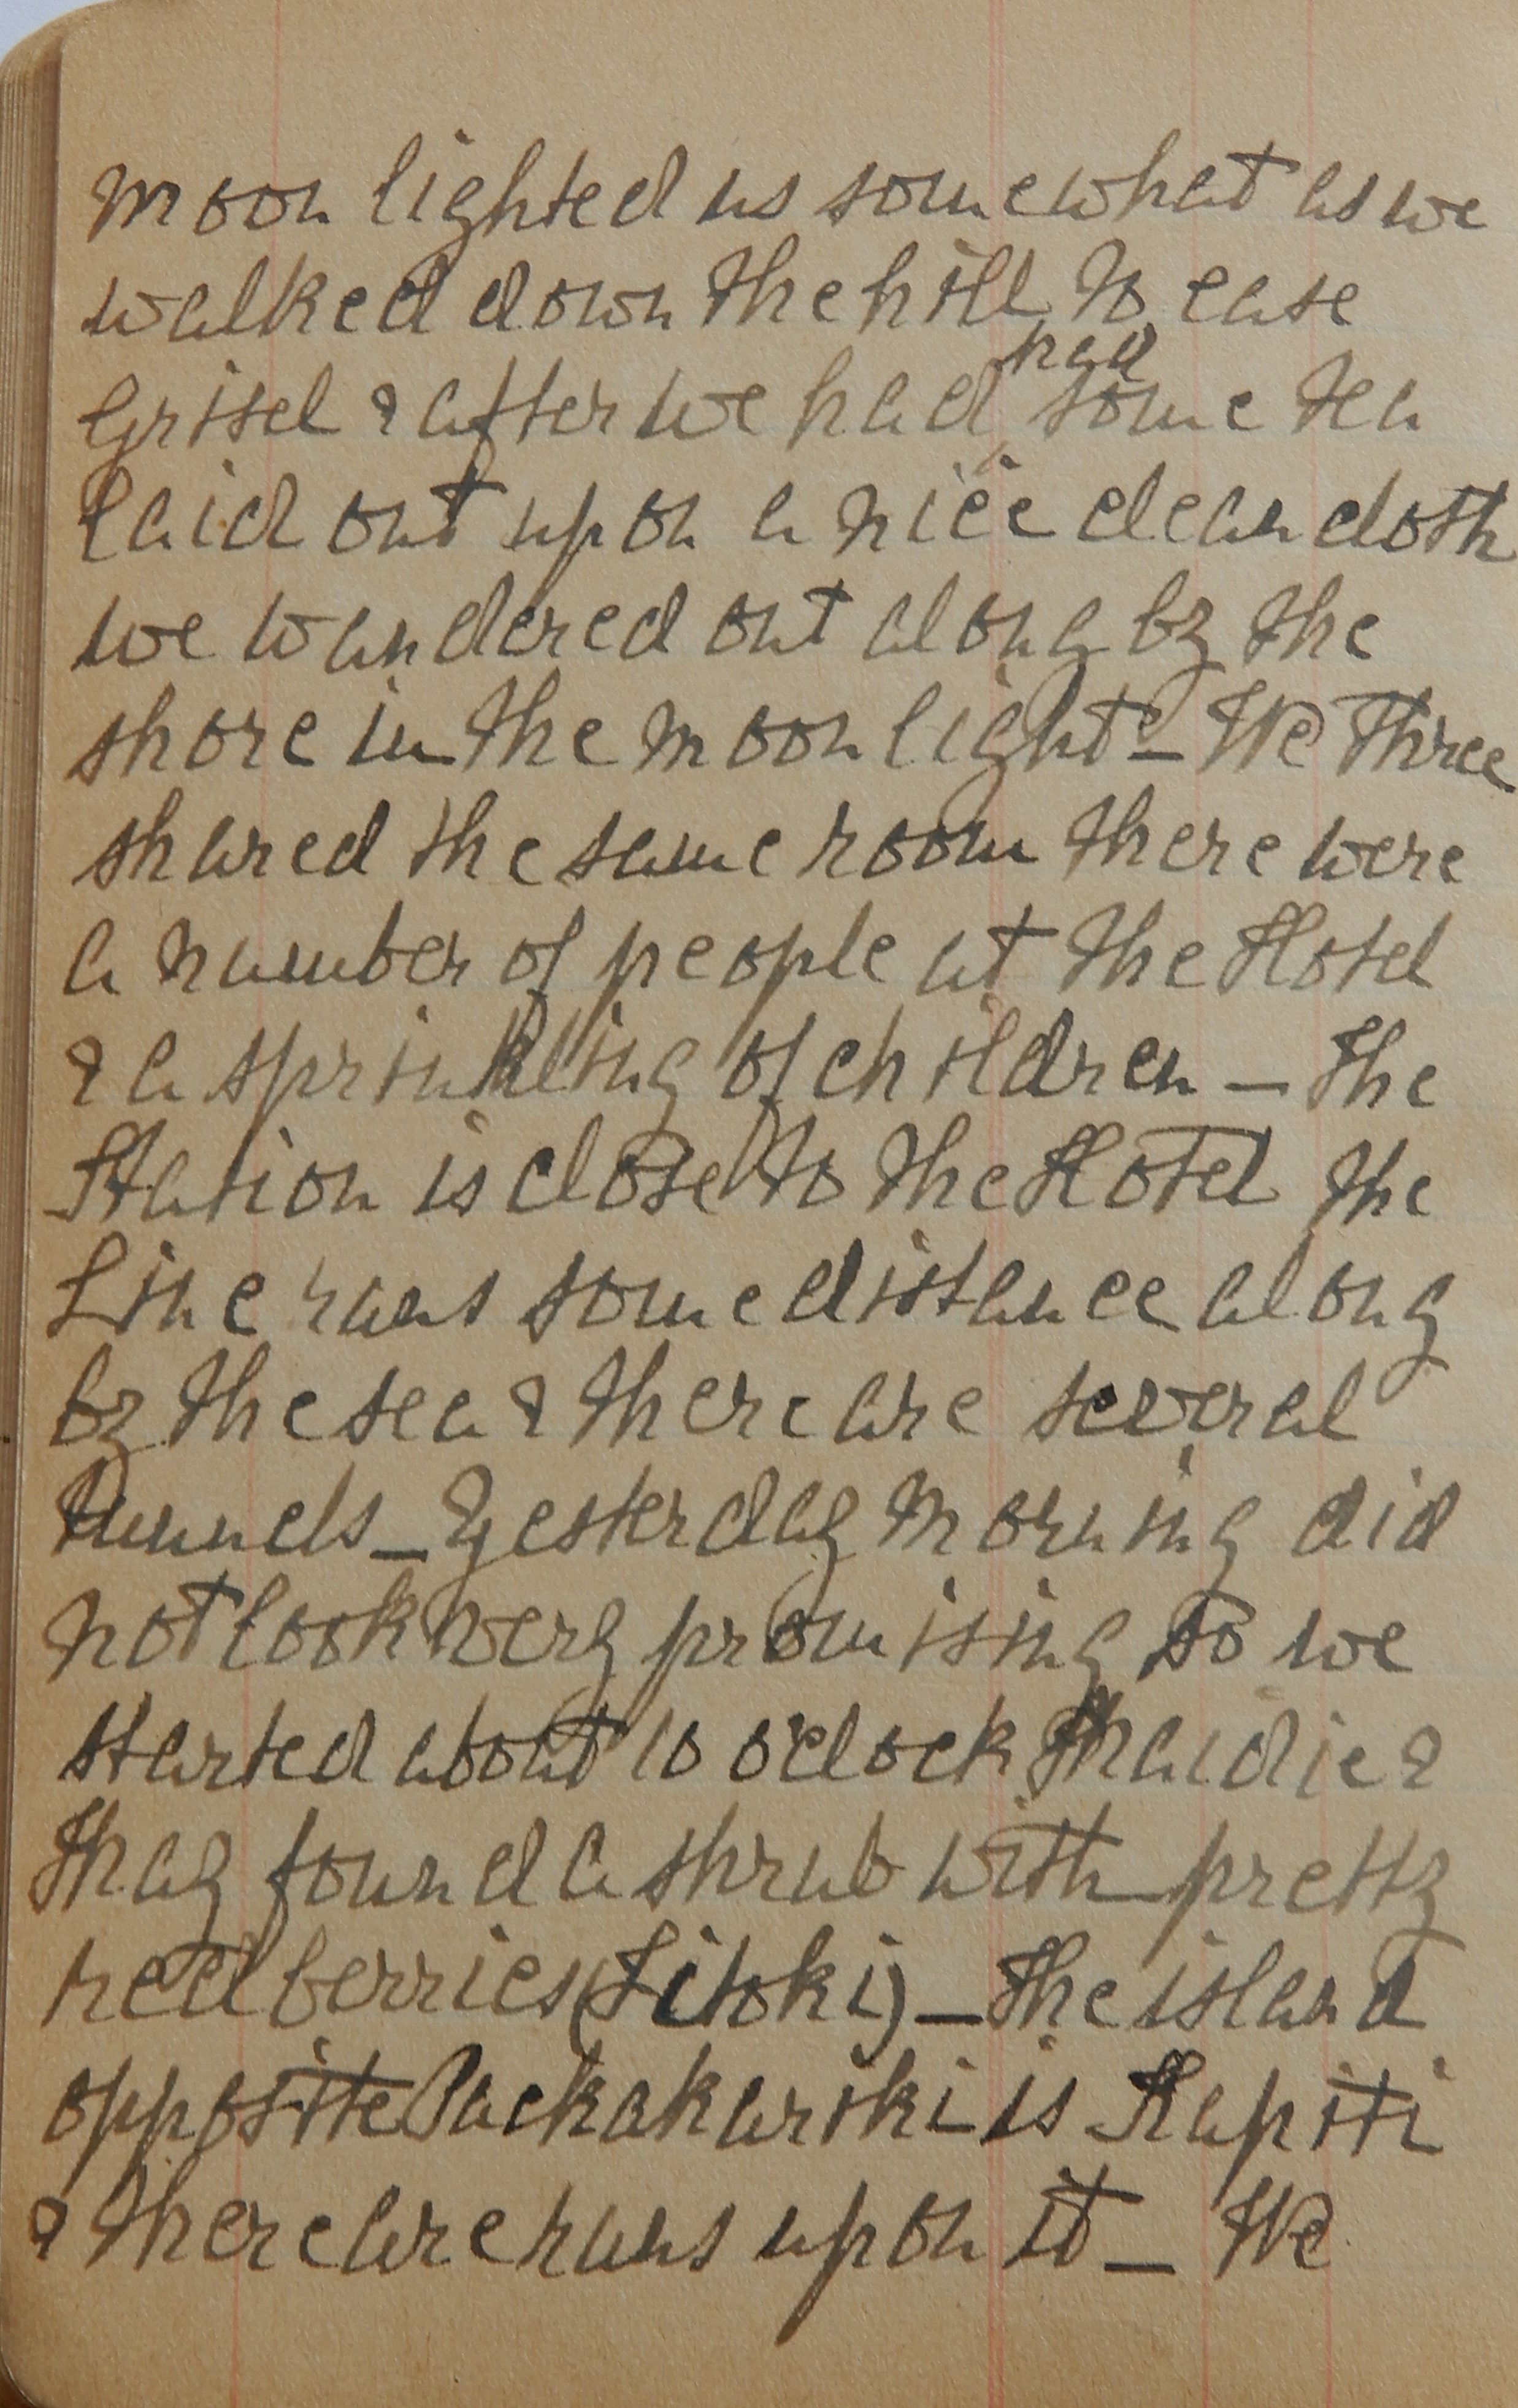 moon lighted us somewhat as we
walked down the hill to ease
Grisel & after we had had some tea
laid out upon a nice clean cloth
we wandered out along by the
shore in the moonlight - We three
shared the same room there were
a number of people at the Hotel
& a sprinkling of children - The
Station is close to the Hotel the
Line runs some distance along
by the sea & there are several
Tunnels - Yesterday morning did
not look very promising so we
started about 10 o'clock Thaidie &
Thay found a shrub with pretty
red berries (Titoki) - The island
opposite Paekakariki is Kapiti
& there are runs upon it - We